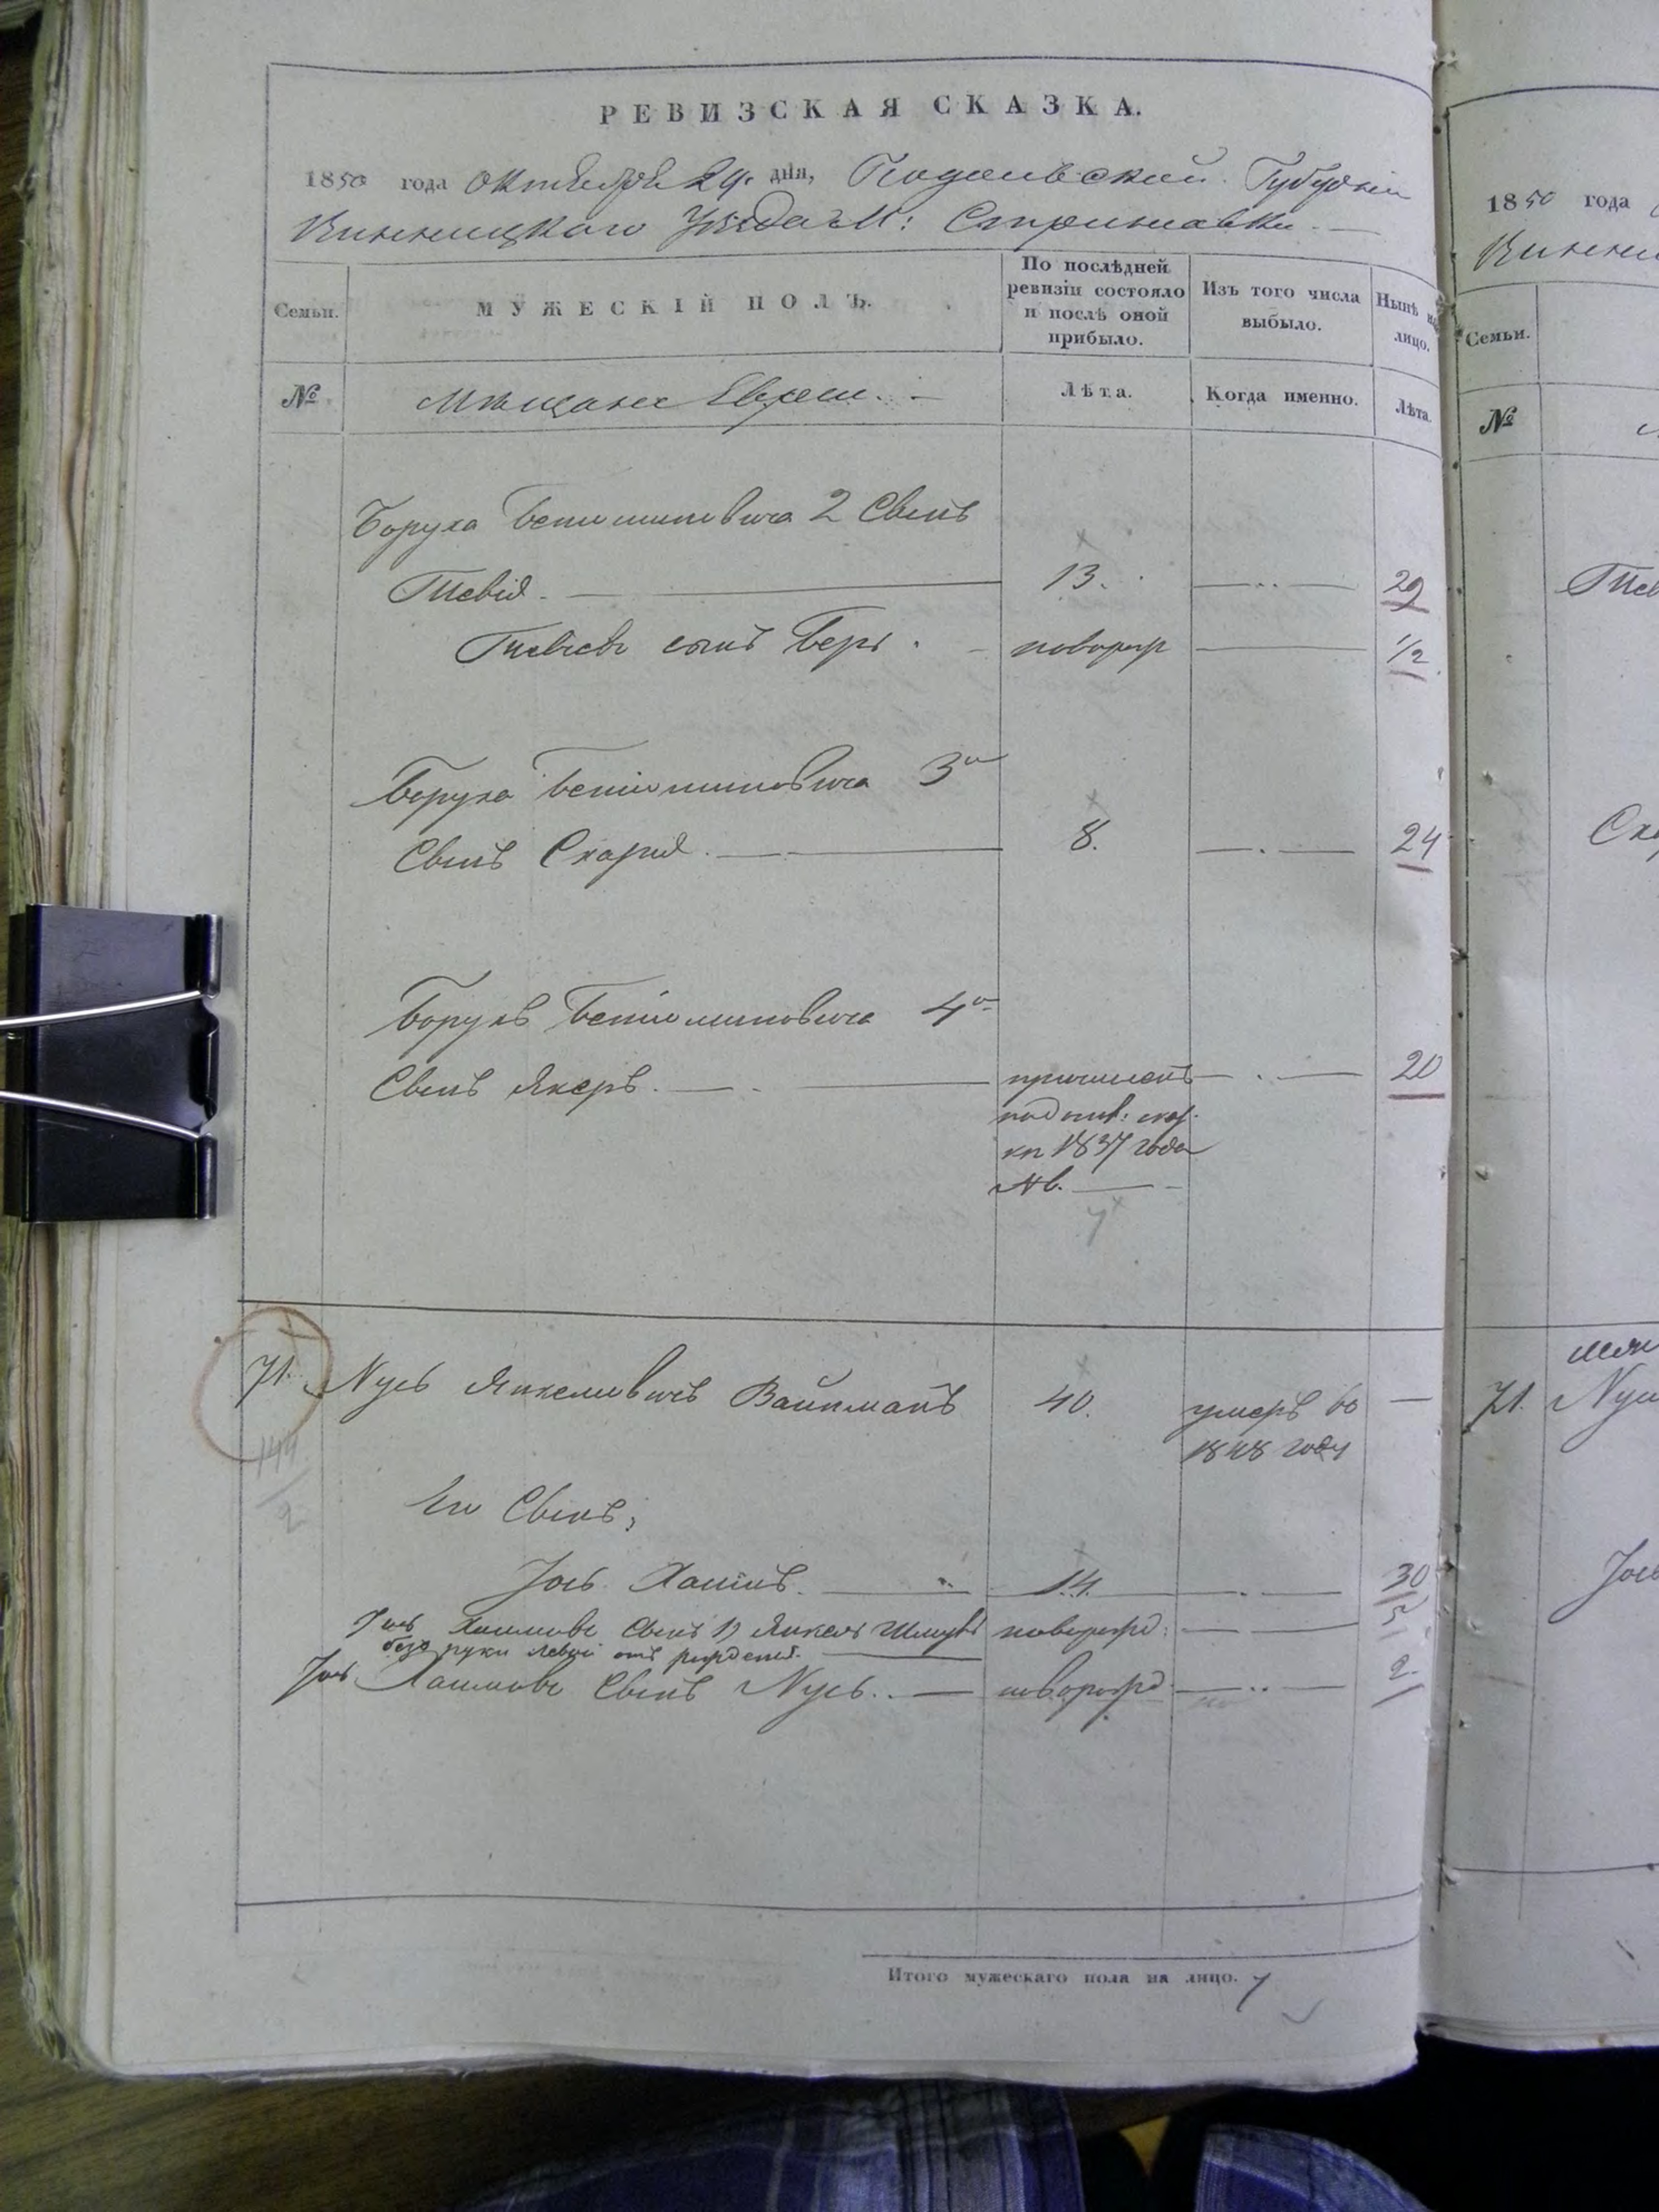 РЕВИЗСКАЯ СКАЗКА.
1850 года Октября 29. дня, Подольской Губерніи
Винницкаго Уѣзда М: Стрижавки
Семьи.
МУЖЕСКІЙ ПОЛЪ.
По послѣдней ревизіи состояло и послѣ оной прибыло.
Изъ того числа выбыло.
Нынѣ на лицо.
№
Мѣщане Евреи.
Лѣта.
Когда именно.
Лѣта.
Боруха Бениминовича 2 Сынъ
Тевія. 13. 29
Тевіевъ сынъ Беръ новорож 1/2
Боруха Беніоминовича 3й
Сынъ Схарія. 8. 24
Борухъ Беніоминовича 4й
Сынъ Якеръ. причисленъ 20
1837 года
7
71. Нусь Янкелевичъ Вайнманъ 40. умеръ въ —
1848 году
144
2
Его Сынъ,
Іось Хаимъ. 14. 30
Іось Хаимовъ Сынъ 1й Янкель Шмуль новорожд: 5
безъ руки левой отъ рожденія.
Іось Хаимовъ Сынъ Нусь. новорожд 2
Итого мужескаго пола на лицо. 7
1850 года
Винни
Семьи.
№
Тев
Сха
71. Нус
Іось